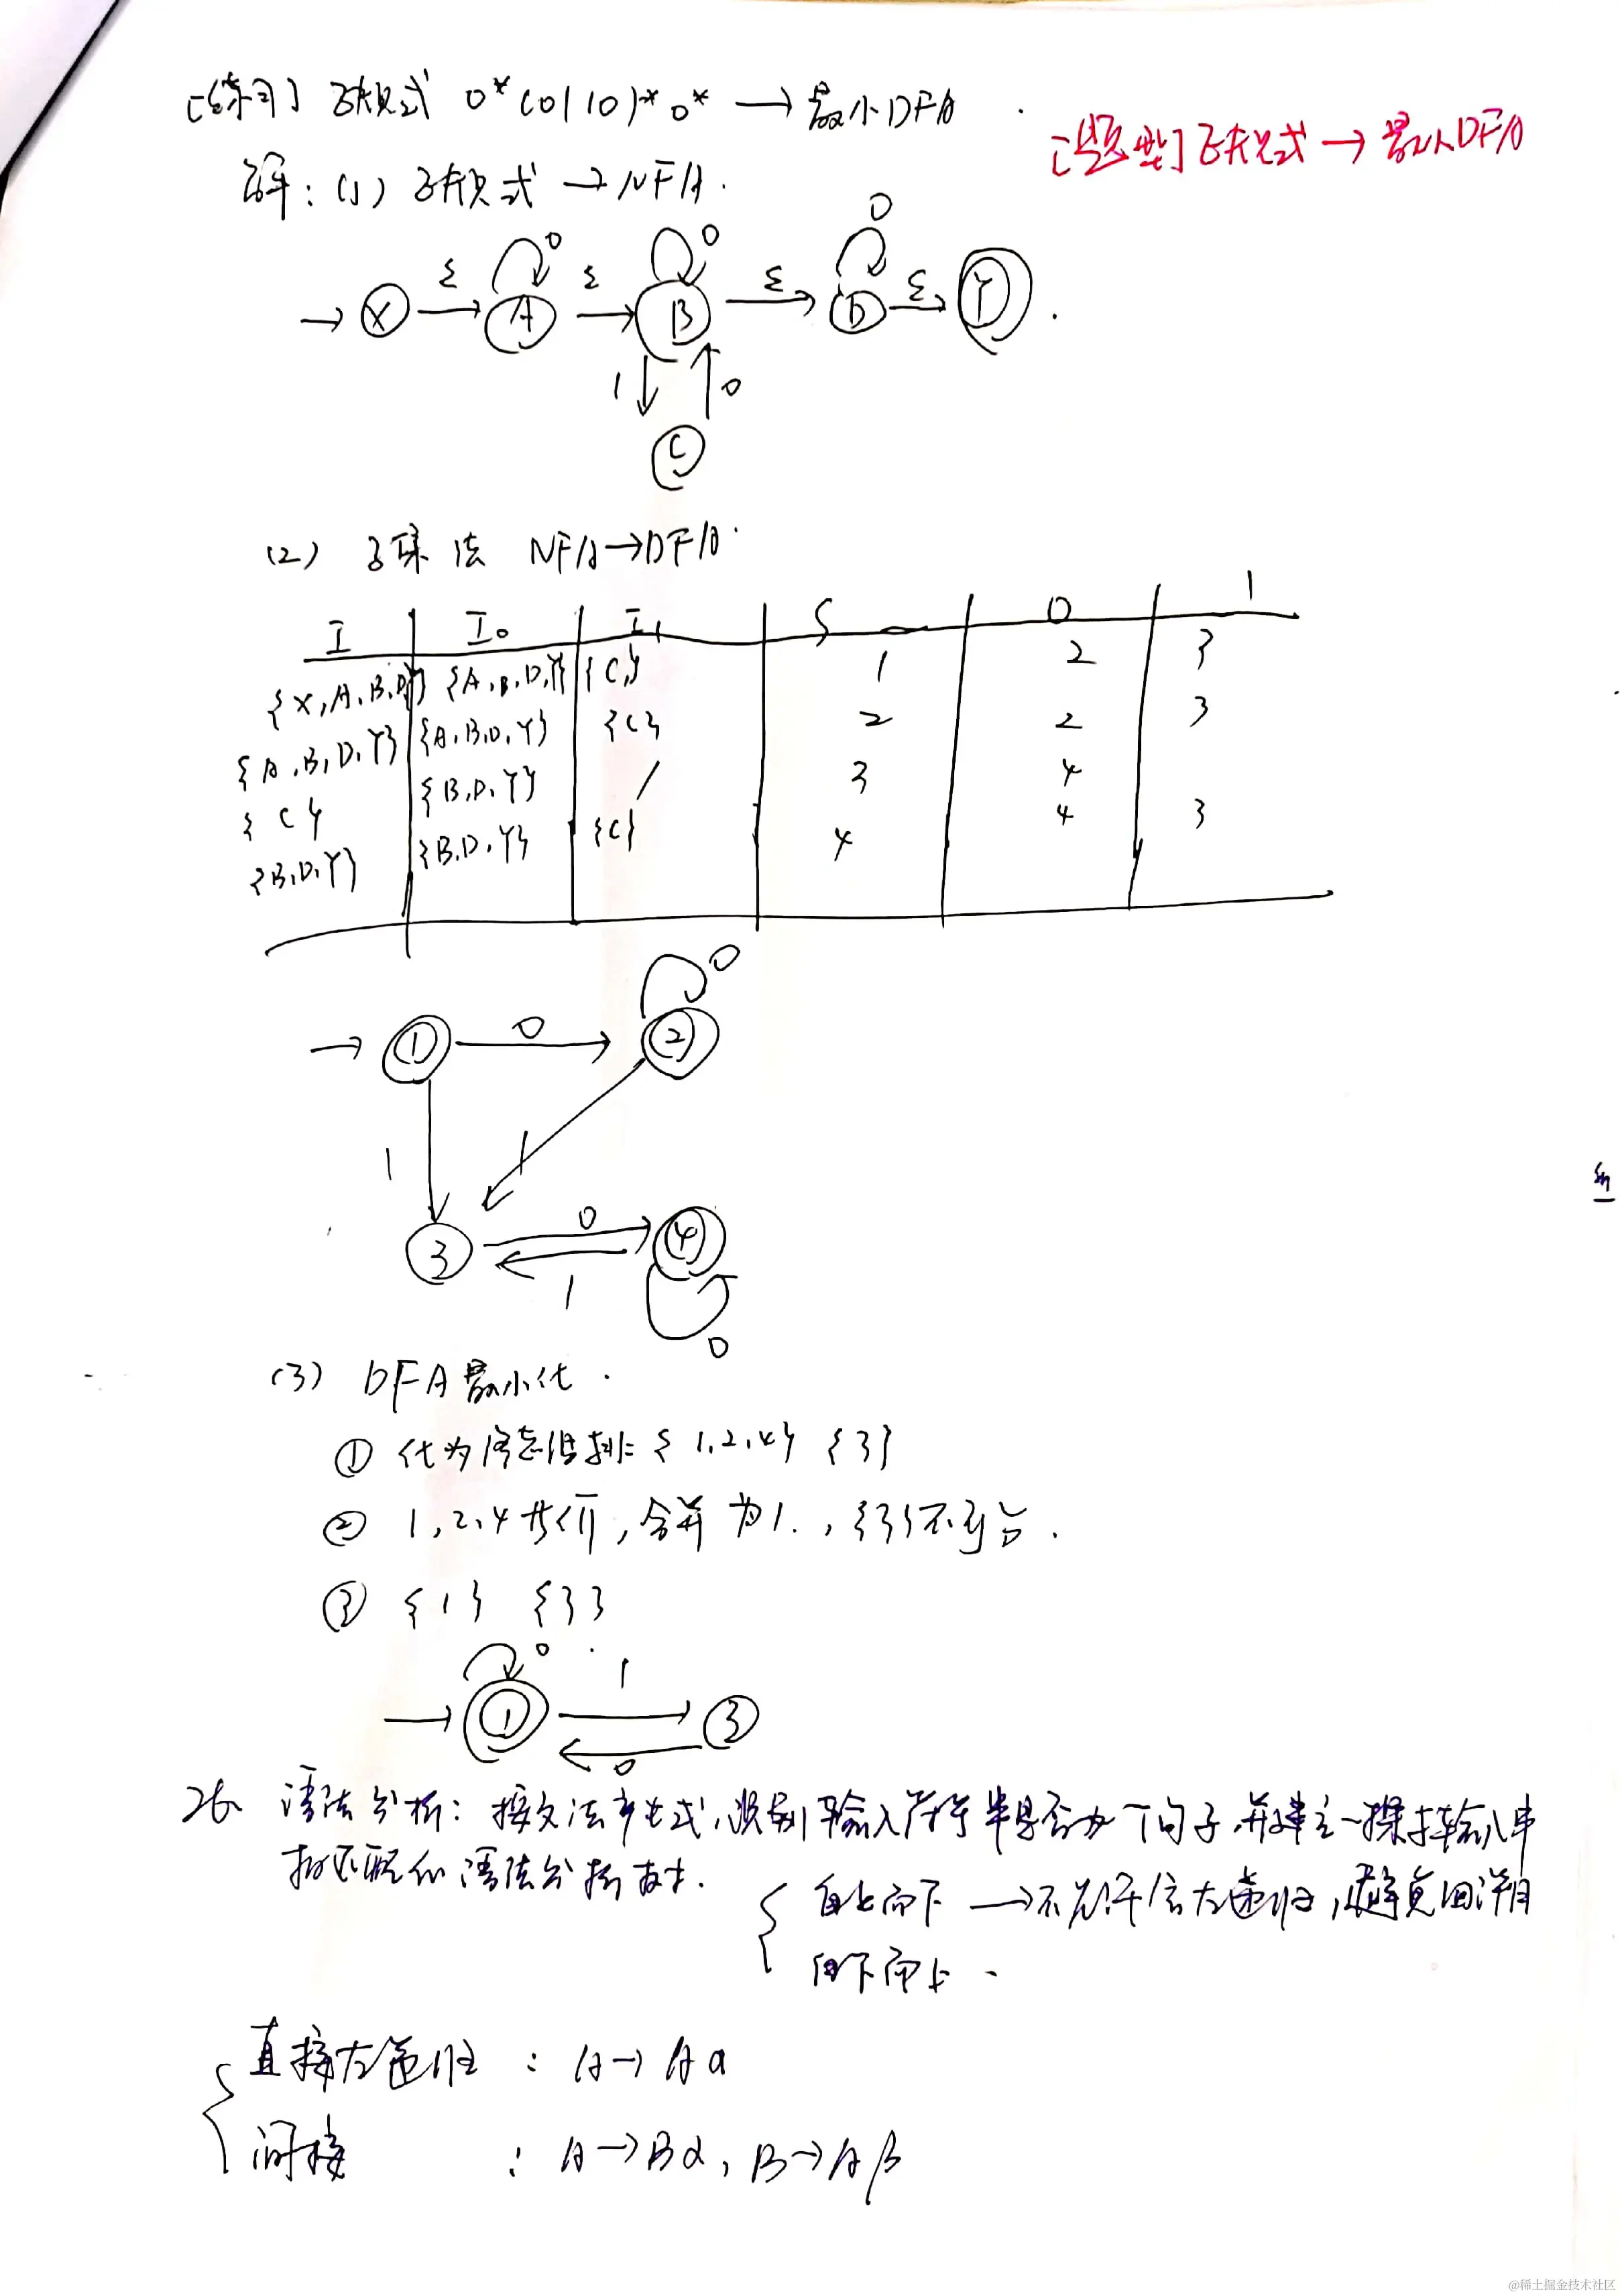 [练习] 正规式 0*(0|10)*0* → 最小DFA.
[题型] 正规式 → 最小DFA
解: (1) 正规式 → NFA.
→ X ε A 0 ε B 0 ε D 0 ε Y .
1 0
C
(2) 子集法 NFA→DFA.
I I₀ I₁ S 0 1
{X,A,B,D,Y} {A,B,D,Y} {C} 1 2 3
{A,B,D,Y} {A,B,D,Y} {C} 2 2 3
{C} {B,D,Y} / 3 4
{B,D,Y} {B,D,Y} {C} 4 4 3
0
→ ① 0 ②
1 1
③ 0 ④
1
0
(3) DFA最小化.
① 化为终态非终态: {1,2,4} {3}
② 1,2,4等价, 合并为1., {3}不可分.
③ {1} {3}
0 1
→ ① ③
0
26. 语法分析: 按文法产生式,识别输入符号串是否为一个句子,并建立一棵与输入串
相匹配的语法分析树.
自上而下 → 不允许含左递归, 避免回溯
自下而上.
直接左递归 : A→Aa
间接 : A→Bα, B→Aβ
@稀土掘金技术社区